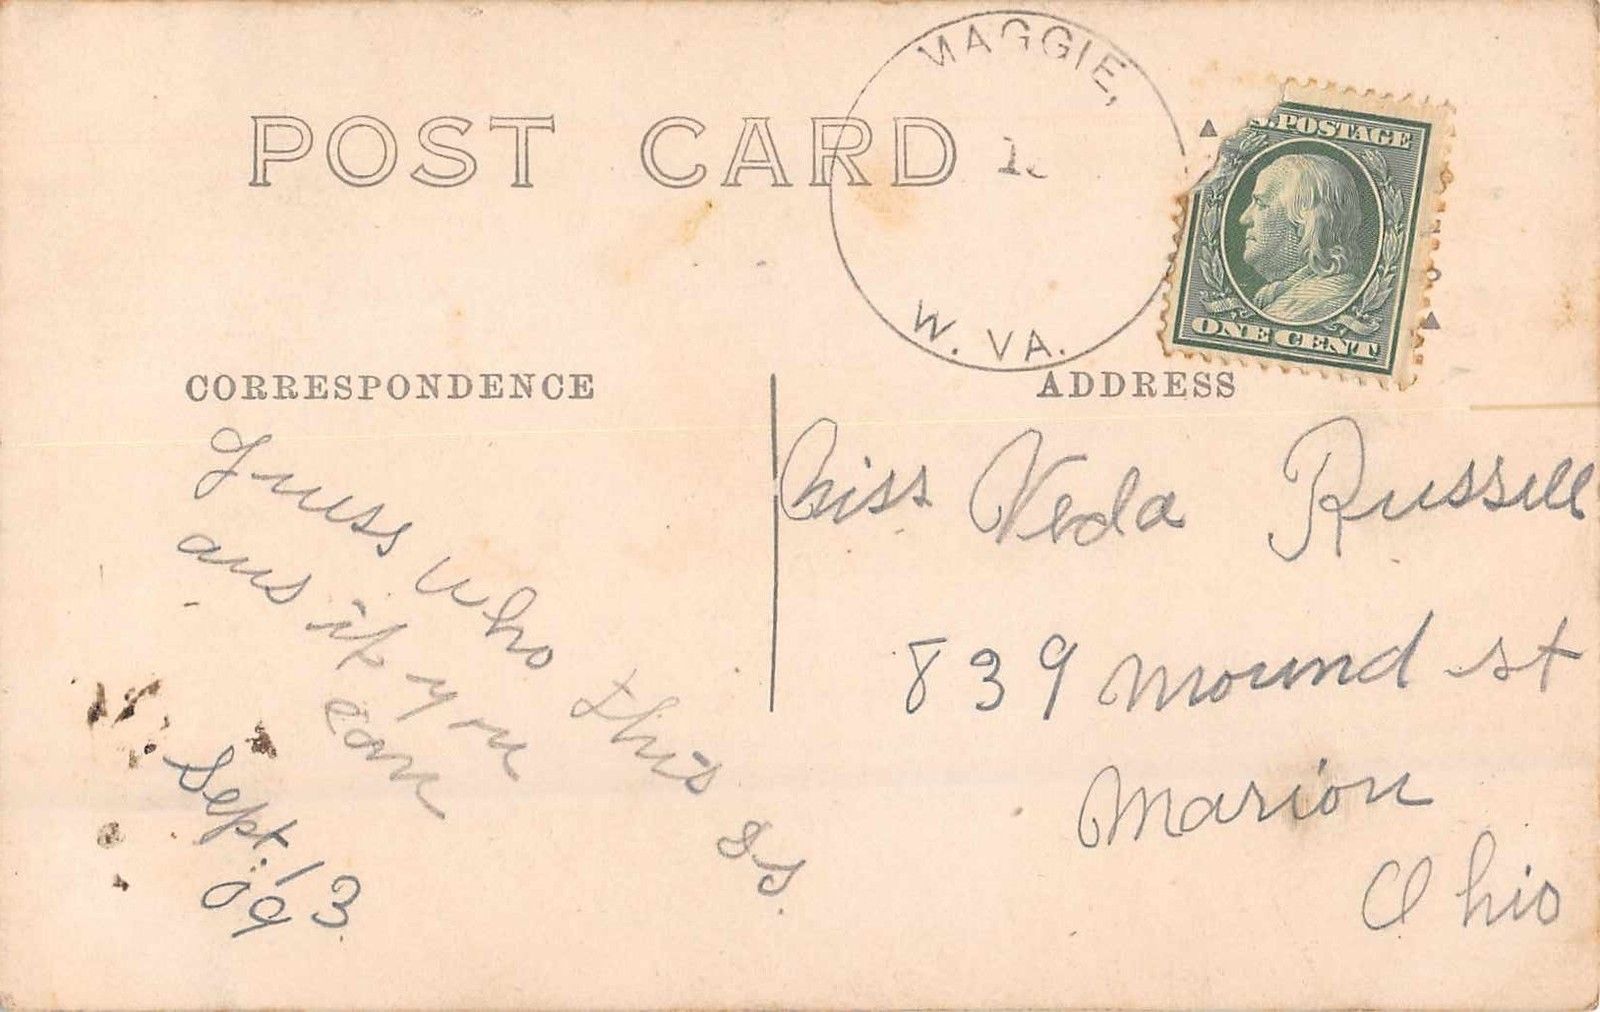 MAGGIE,
W. VA.
POST CARD
POSTAGE
ONE CENT
CORRESPONDENCE
ADDRESS
Guess who this is.
ans if you
can
Sept. 13
09
Miss Veda Russell
839 Mound st
Marion
Ohio